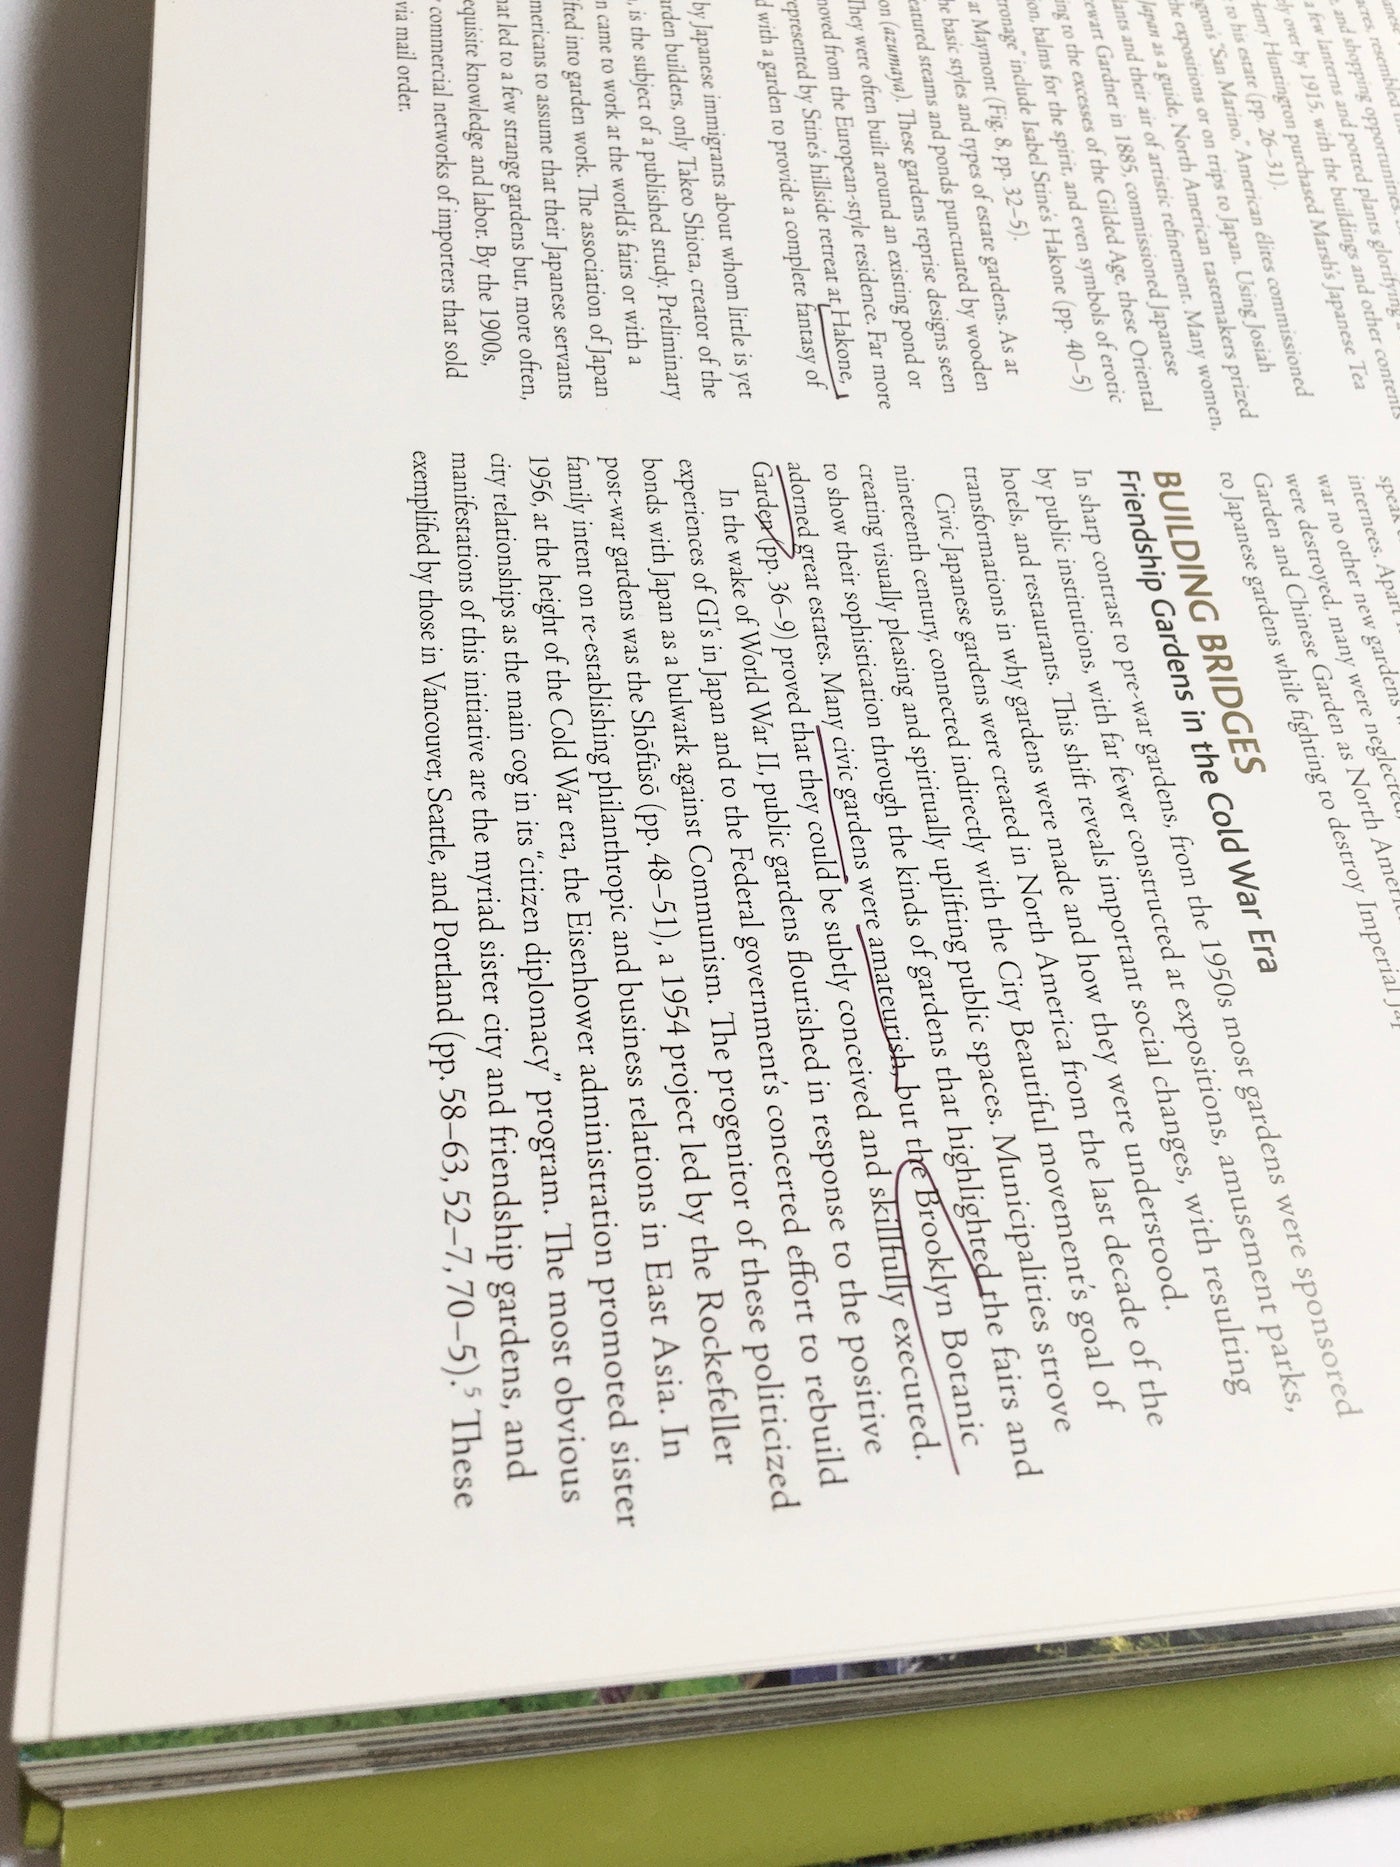 acres, resembled
and shopping opportunities
a few lanterns and potted plants glorifying
over by 1915, with the buildings and other contents
Henry Huntington purchased Marsh's Japanese Tea
to his estate (pp. 26–31).
"San Marino," American élites commissioned
the expositions or on trips to Japan. Using Josiah
Japan as a guide, North American tastemakers prized
and their air of artistic refinement. Many women,
Gardner in 1885, commissioned Japanese
to the excesses of the Gilded Age, these Oriental
balms for the spirit, and even symbols of erotic
include Isabel Stine's Hakone (pp. 40–5)
at Maymont (Fig. 8, pp. 32–5).
basic styles and types of estate gardens. As at
steams and ponds punctuated by wooden
(azumaya). These gardens reprise designs seen
They were often built around an existing pond or
from the European-style residence. Far more
represented by Stine's hillside retreat at Hakone,
with a garden to provide a complete fantasy of
by Japanese immigrants about whom little is yet
builders, only Takeo Shiota, creator of the
is the subject of a published study. Preliminary
came to work at the world's fairs or with a
into garden work. The association of Japan
to assume that their Japanese servants
led to a few strange gardens but, more often,
knowledge and labor. By the 1900s,
commercial networks of importers that sold
via mail order.
internees. Apart
war no other new gardens
were destroyed, many were neglected
Garden and Chinese Garden as North
to Japanese gardens while fighting to destroy Imperial
BUILDING BRIDGES
Friendship Gardens in the Cold War Era
In sharp contrast to pre-war gardens, from the 1950s most gardens were sponsored
by public institutions, with far fewer constructed at expositions, amusement parks,
hotels, and restaurants. This shift reveals important social changes, with resulting
transformations in why gardens were made and how they were understood.
Civic Japanese gardens were created in North America from the last decade of the
nineteenth century, connected indirectly with the City Beautiful movement's goal of
creating visually pleasing and spiritually uplifting public spaces. Municipalities strove
to show their sophistication through the kinds of gardens that highlighted the fairs and
adorned great estates. Many civic gardens were amateurish, but the Brooklyn Botanic
Garden (pp. 36–9) proved that they could be subtly conceived and skillfully executed.
In the wake of World War II, public gardens flourished in response to the positive
experiences of GI's in Japan and to the Federal government's concerted effort to rebuild
bonds with Japan as a bulwark against Communism. The progenitor of these politicized
post-war gardens was the Shōfūsō (pp. 48–51), a 1954 project led by the Rockefeller
family intent on re-establishing philanthropic and business relations in East Asia. In
1956, at the height of the Cold War era, the Eisenhower administration promoted sister
city relationships as the main cog in its "citizen diplomacy" program. The most obvious
manifestations of this initiative are the myriad sister city and friendship gardens, and
exemplified by those in Vancouver, Seattle, and Portland (pp. 58–63, 52–7, 70–5).⁵ These